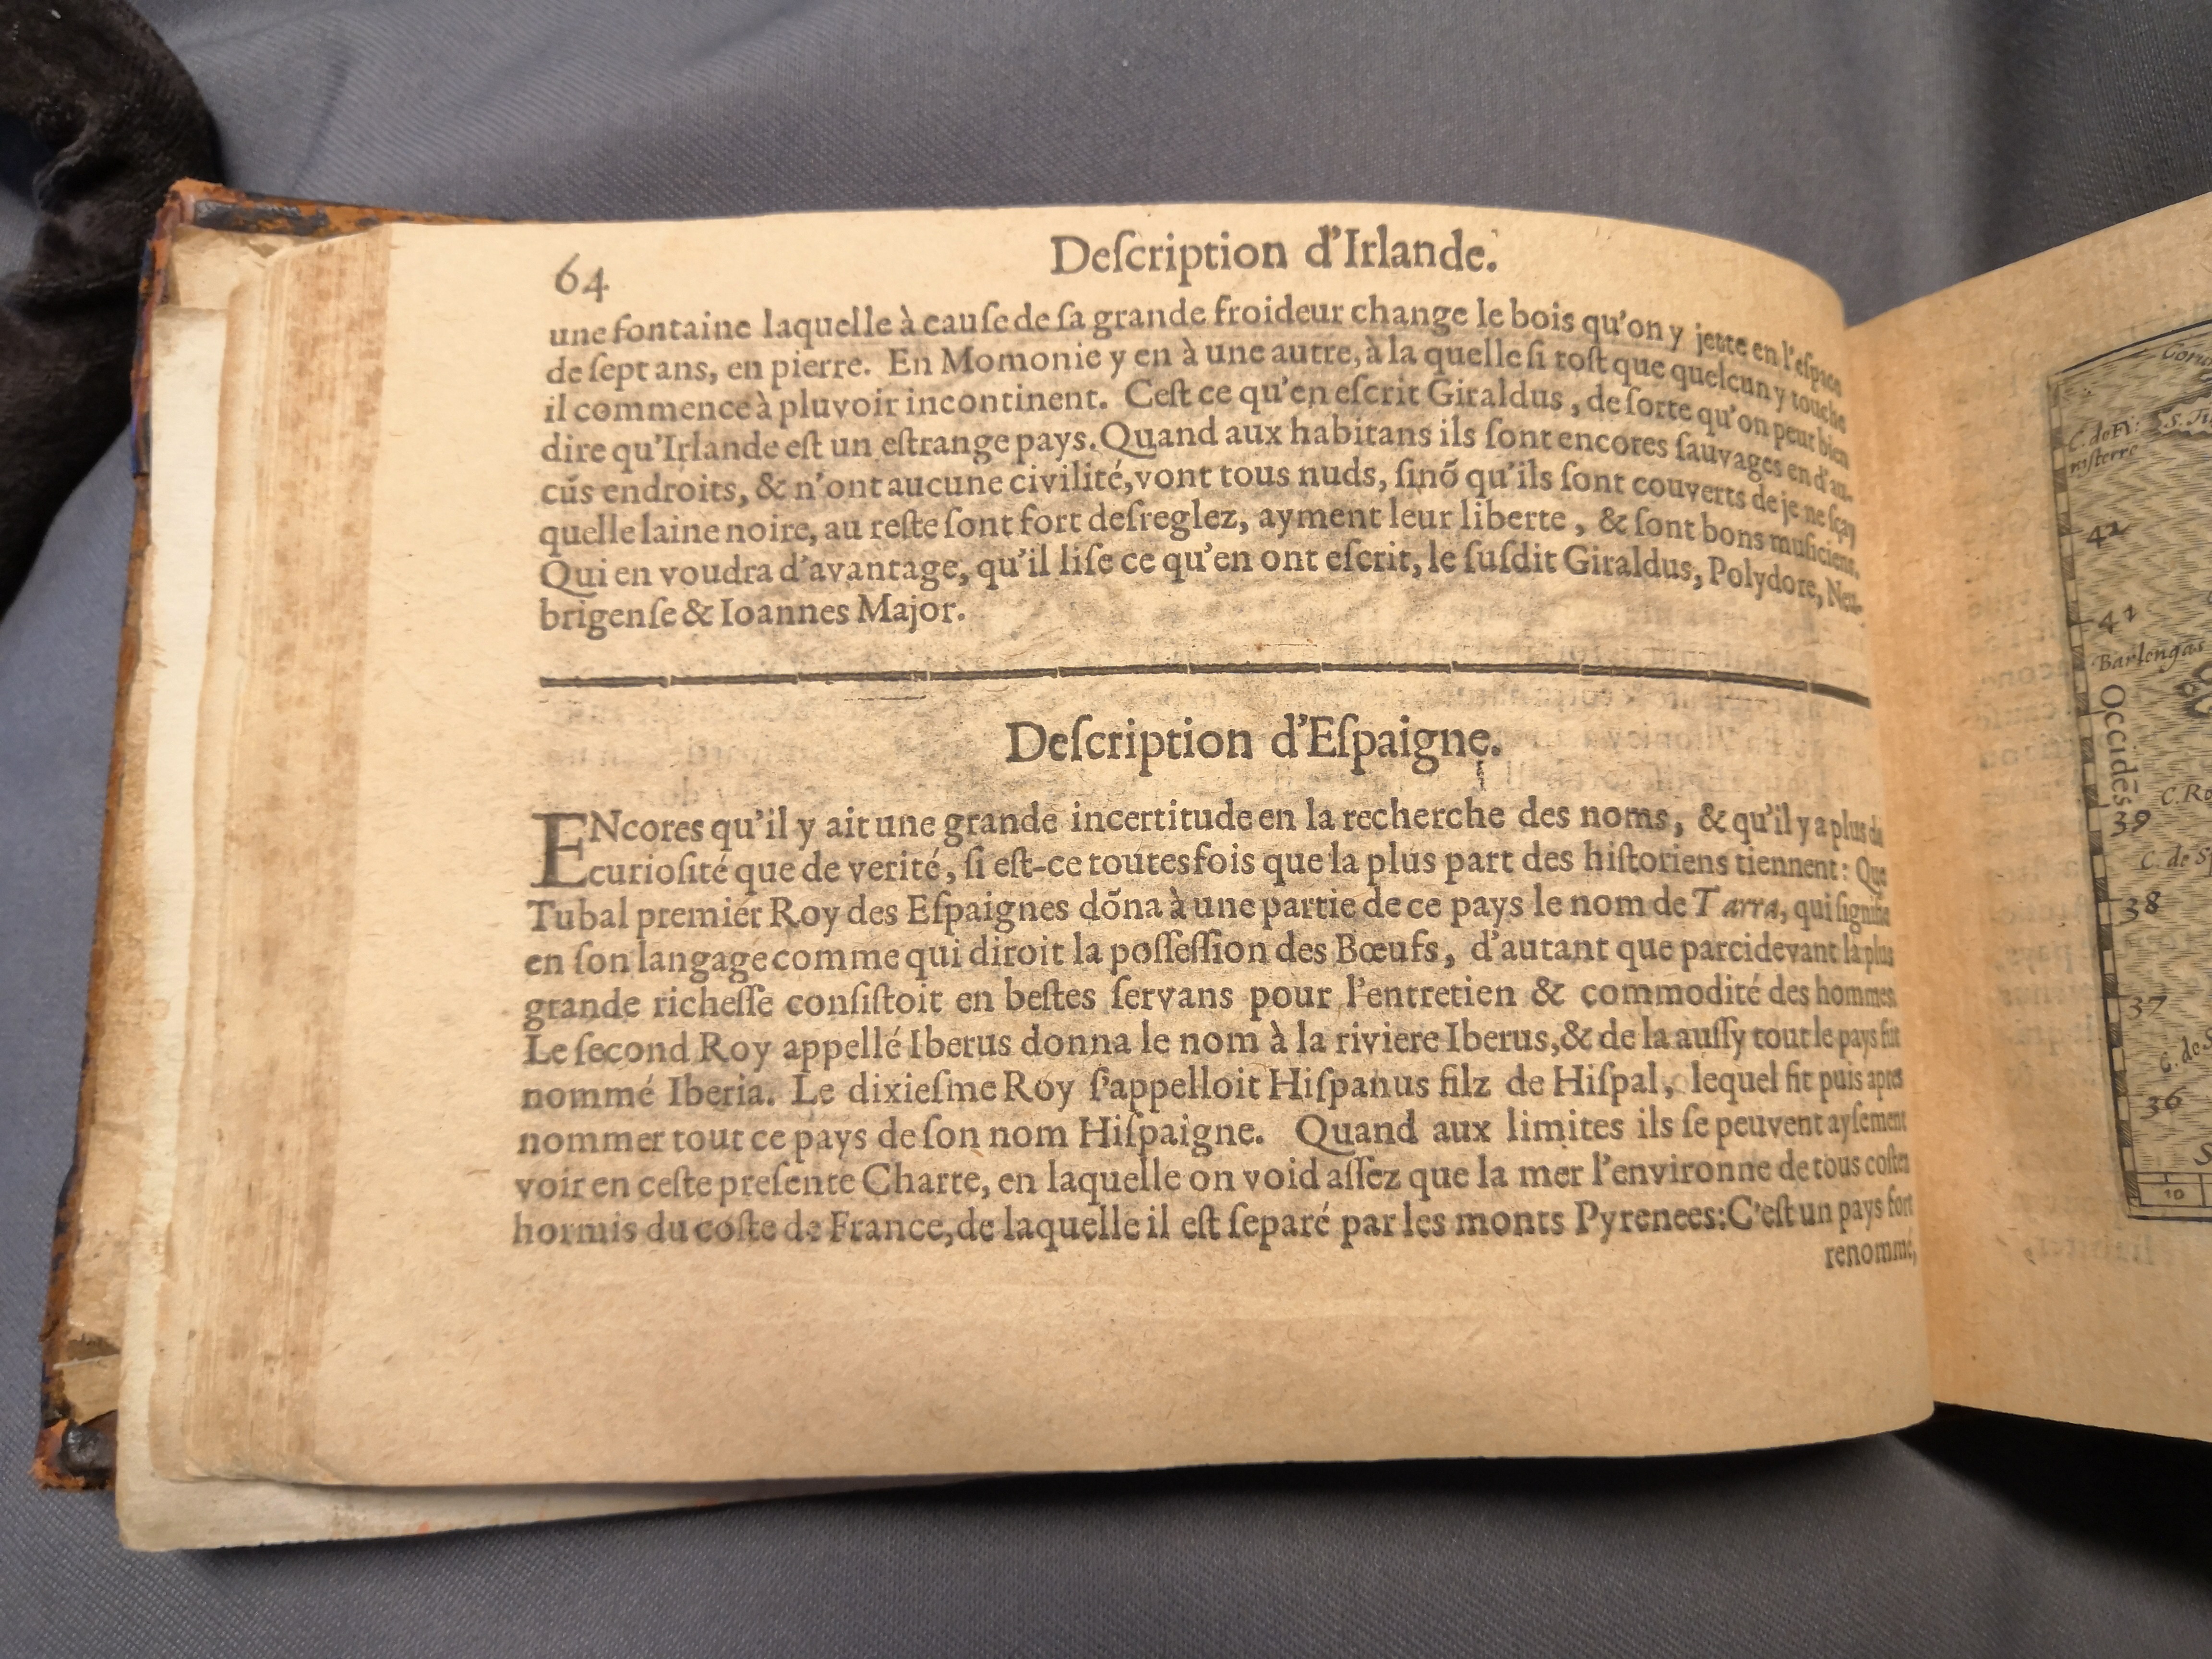 64
Deſcription d'Irlande.
une fontaine laquelle à cauſe de ſa grande froideur change le bois qu'on y jette en l'eſpace
de ſept ans, en pierre. En Momonie y en à une autre, à la quelle ſi toſt que quelcun y touche
il commence à pluvoir incontinent. Ceſt ce qu'en eſcrit Giraldus, de ſorte qu'on peut bien
dire qu'Irlande eſt un eſtrange pays. Quand aux habitans ils ſont encores ſauvages en d'au-
cũs endroits, & n'ont aucune civilité, vont tous nuds, ſinõ qu'ils ſont couverts de je ne ſçay
quelle laine noire, au reſte ſont fort deſreglez, ayment leur liberte, & ſont bons muſiciens.
Qui en voudra d'avantage, qu'il liſe ce qu'en ont eſcrit, le ſuſdit Giraldus, Polydore, Neu-
brigenſe & Ioannes Major.
Deſcription d'Eſpaigne.
ENcores qu'il y ait une grande incertitude en la recherche des noms, & qu'il y a plus de
curioſité que de verité, ſi eſt-ce toutesfois que la plus part des hiſtoriens tiennent: Que
Tubal premier Roy des Eſpaignes dõna à une partie de ce pays le nom de Tarra, qui ſignifie
en ſon langage comme qui diroit la poſſeſſion des Bœufs, d'autant que parcidevant la plus
grande richeſſe conſiſtoit en beſtes ſervans pour l'entretien & commodité des hommes
Le ſecond Roy appellé Iberus donna le nom à la riviere Iberus, & de la auſſy tout le pays fut
nommé Iberia. Le dixieſme Roy ſ'appelloit Hiſpanus filz de Hiſpal, lequel fit puis apres
nommer tout ce pays de ſon nom Hiſpaigne. Quand aux limites ils ſe peuvent ayſement
voir en ceſte preſente Charte, en laquelle on void aſſez que la mer l'environne de tous coſtez
hormis du coſte de France, de laquelle il eſt ſeparé par les monts Pyrenees: C'eſt un pays fort
renommé,
42
41
Barlengas
Occidẽs
39
38
37
36
10